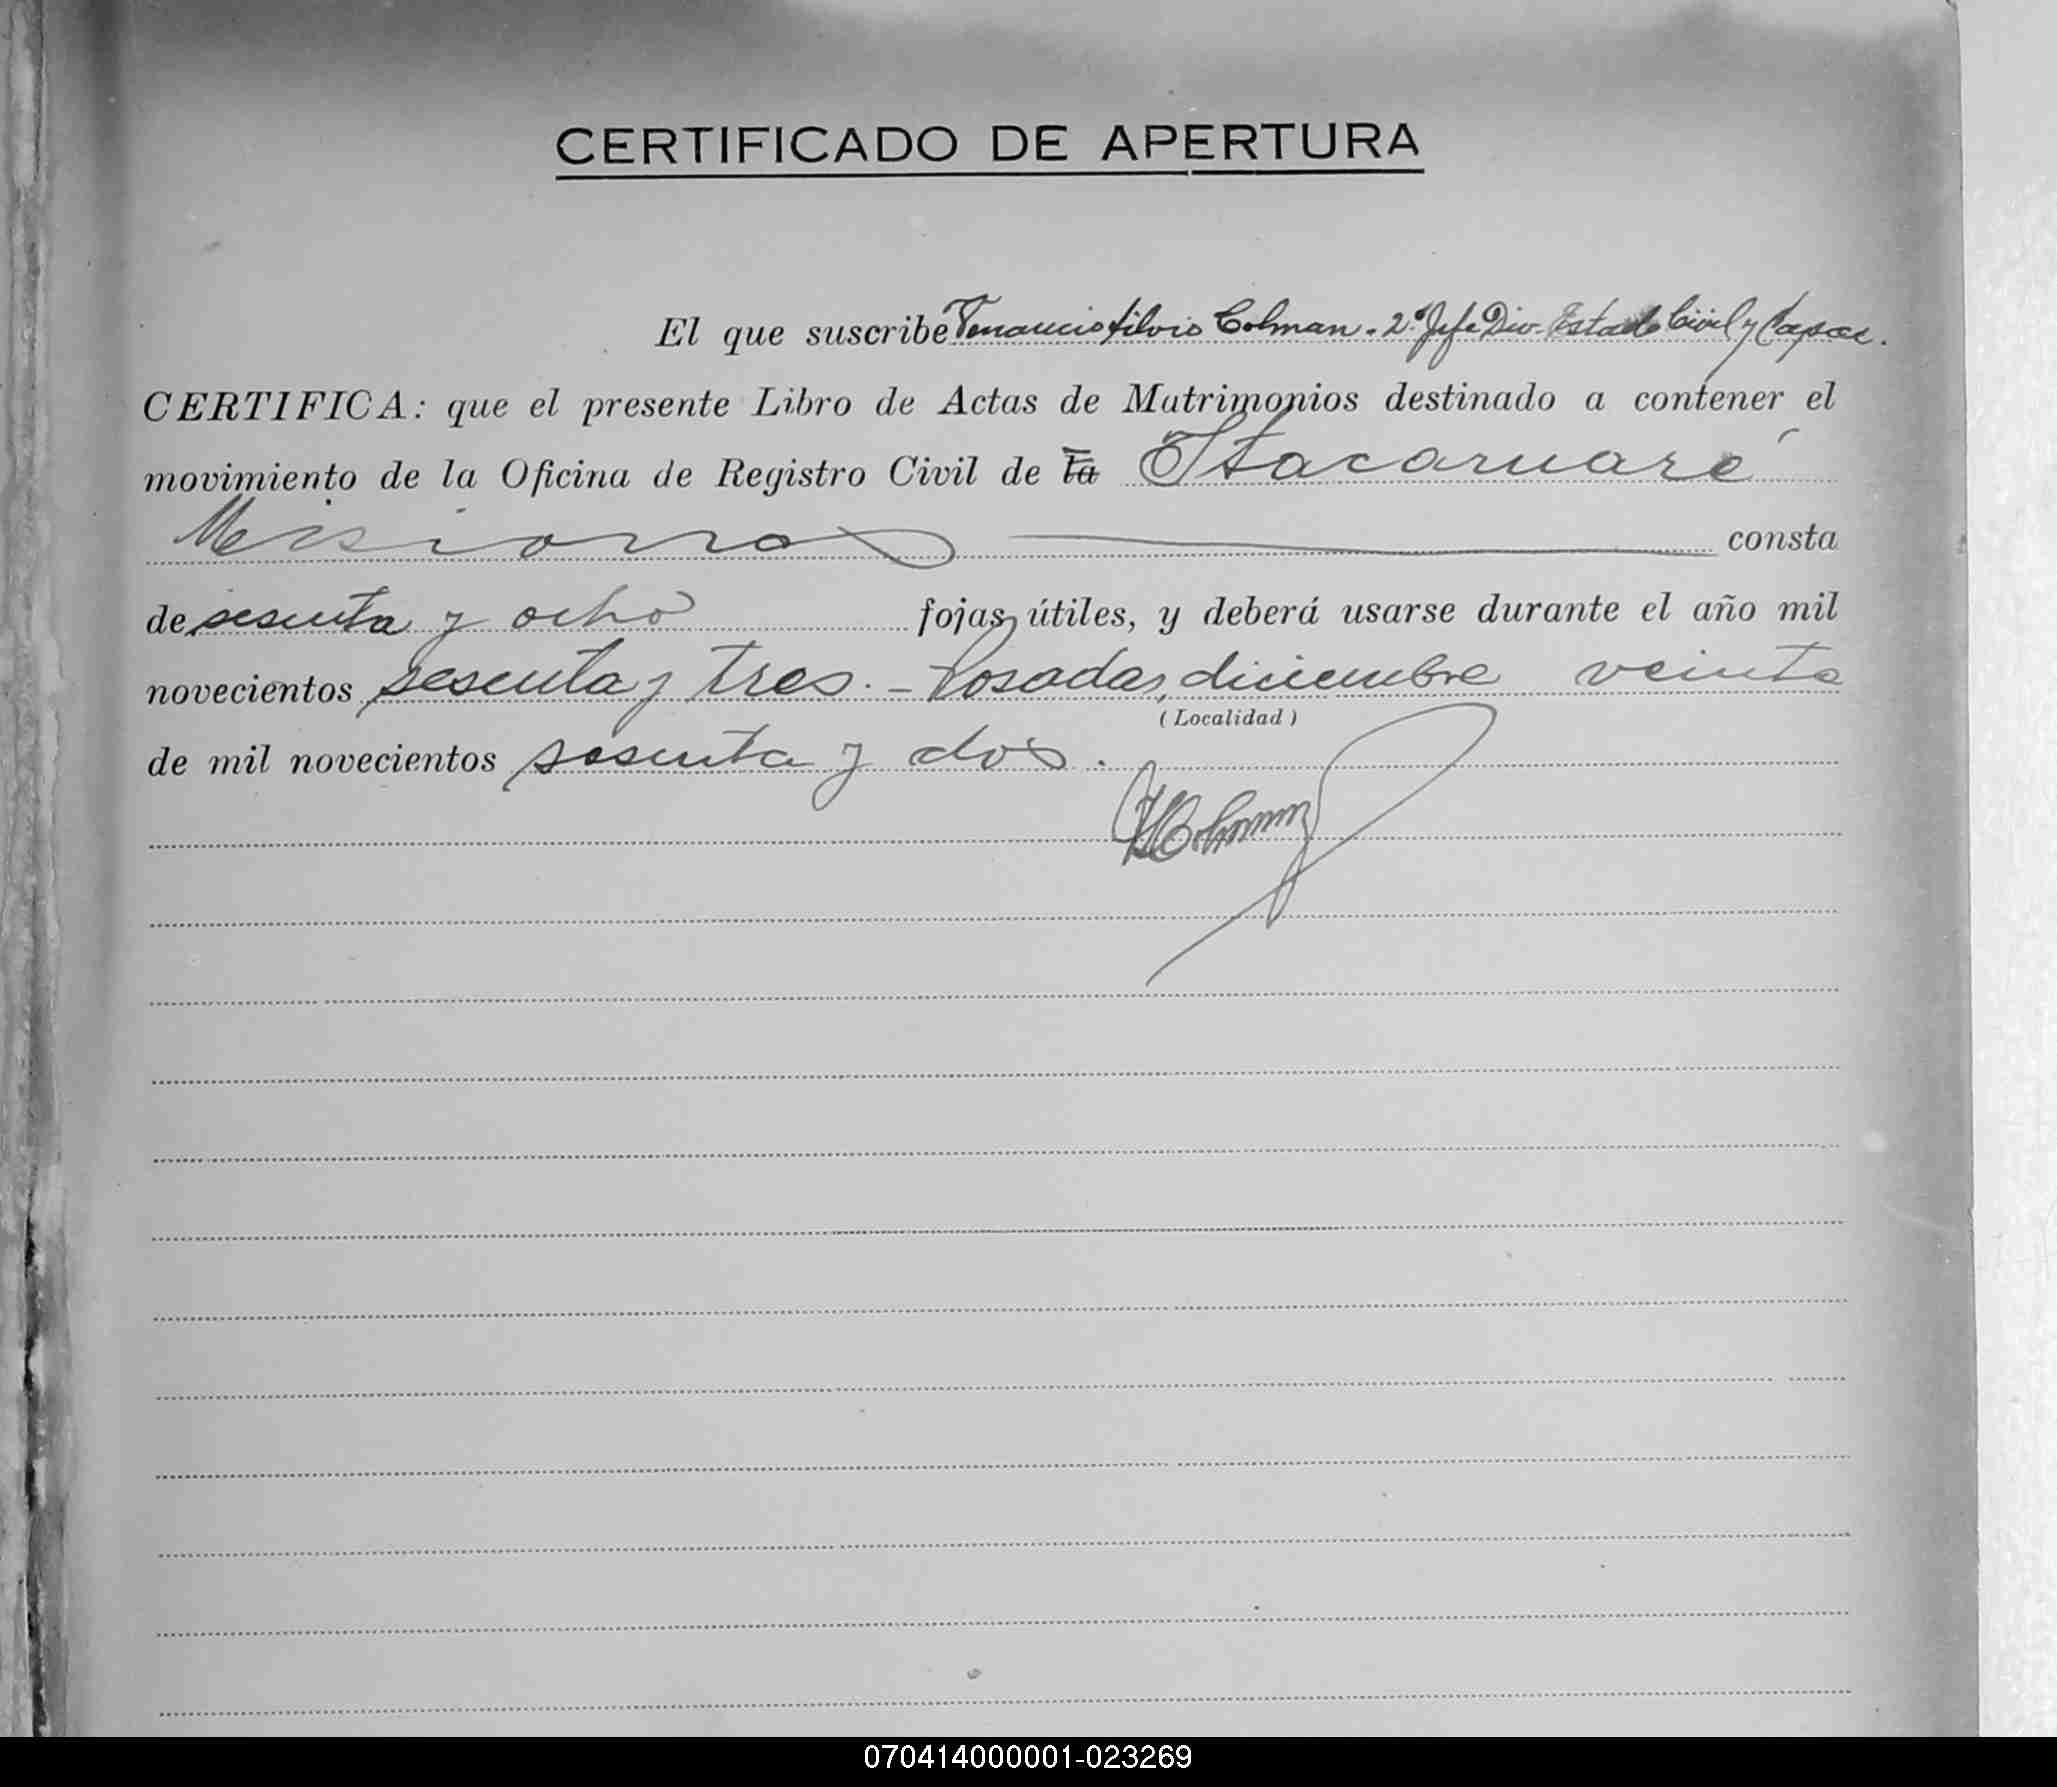 CERTIFICADO DE APERTURA
El que suscribe Venancio Silvio Colman. 2º Jefe Div. Estado Civil y Capac.
CERTIFICA: que el presente Libro de Actas de Matrimonios destinado a contener el
movimiento de la Oficina de Registro Civil de la Itacaruaré
Misiones consta
de sesenta y ocho fojas útiles, y deberá usarse durante el año mil
novecientos sesenta y tres. - Posadas, diciembre veinte
(Localidad)
de mil novecientos sesenta y dos.
VSColman
070414000001-023269